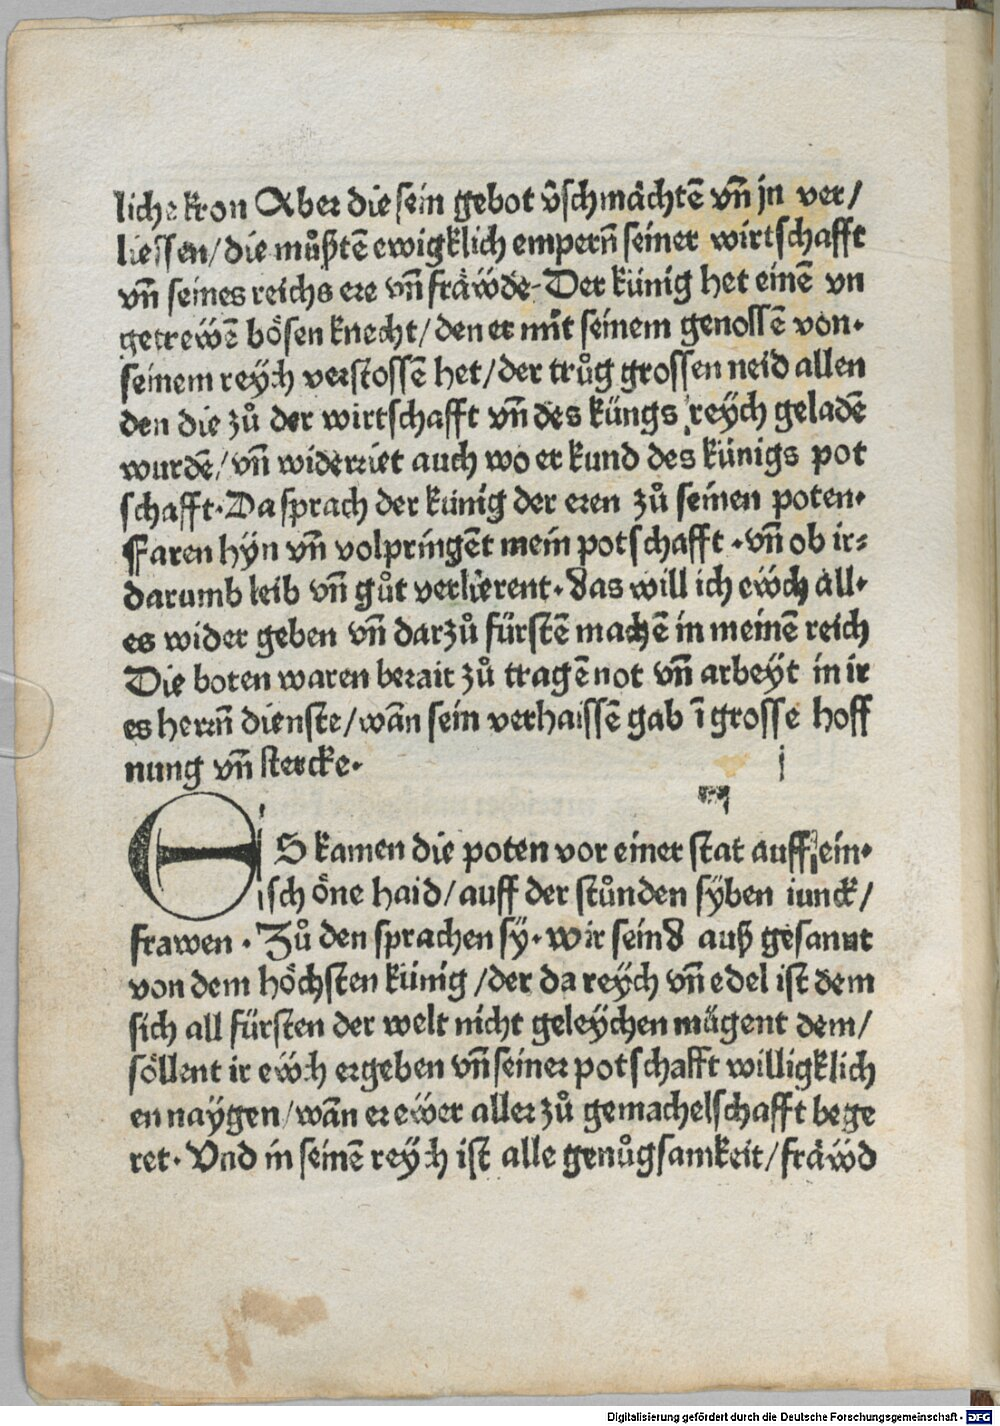 liche kron Aber die sein gebot v̂schmächtē vn̄ jn ver/
liessen/die můßtē ewigklich empern̄ seiner wirtschafft
vn̄ seines reichs ere vn̄ fräẅde-Der künig het einē vn
getreẅē bösen knecht/den er mit seinem genossē von·
seinem reÿch verstossē het/der trůg grossen neid allen
den die zů der wirtschafft vn̄ des küngs reÿch geladē
wurdē/vn̄ widerriet auch wo er kund des künigs pot
schafft·Da sprach der künig der eren zů seinen poten·
Faren hÿn vn̄ volpringēt mein potschafft·vn̄ ob ir⸗
darumb leib vn̄ gůt verlierent·das will ich eẅch all·
es wider geben vn̄ darzů fürstē machē in meinē reich
Die boten waren berait zů tragē not vn̄ arbeÿt in ir
es herrn̄ dienste/wān sein verhaissē gab ī grosse hoff
nung vn̄ stercke·
ES kamen die poten vor einer stat auff ein·
schöne haid/auff der stůnden sÿben iunck/
frawen·Zů den sprachen sÿ·wir seind auß gesannt
von dem höchsten künig/der da reÿch vn̄ edel ist dem
sich all fürsten der welt nicht geleÿchen mägent dem/
söllent ir eẅch ergeben vn̄ seiner potschafft willigklich
en naÿgen/wān er eẅer aller zů gemachelschafft bege
ret·Vnd in seinē reÿch ist alle genůgsamkeit/fräẅd
Digitalisierung gefördert durch die Deutsche Forschungsgemeinschaft - DFG